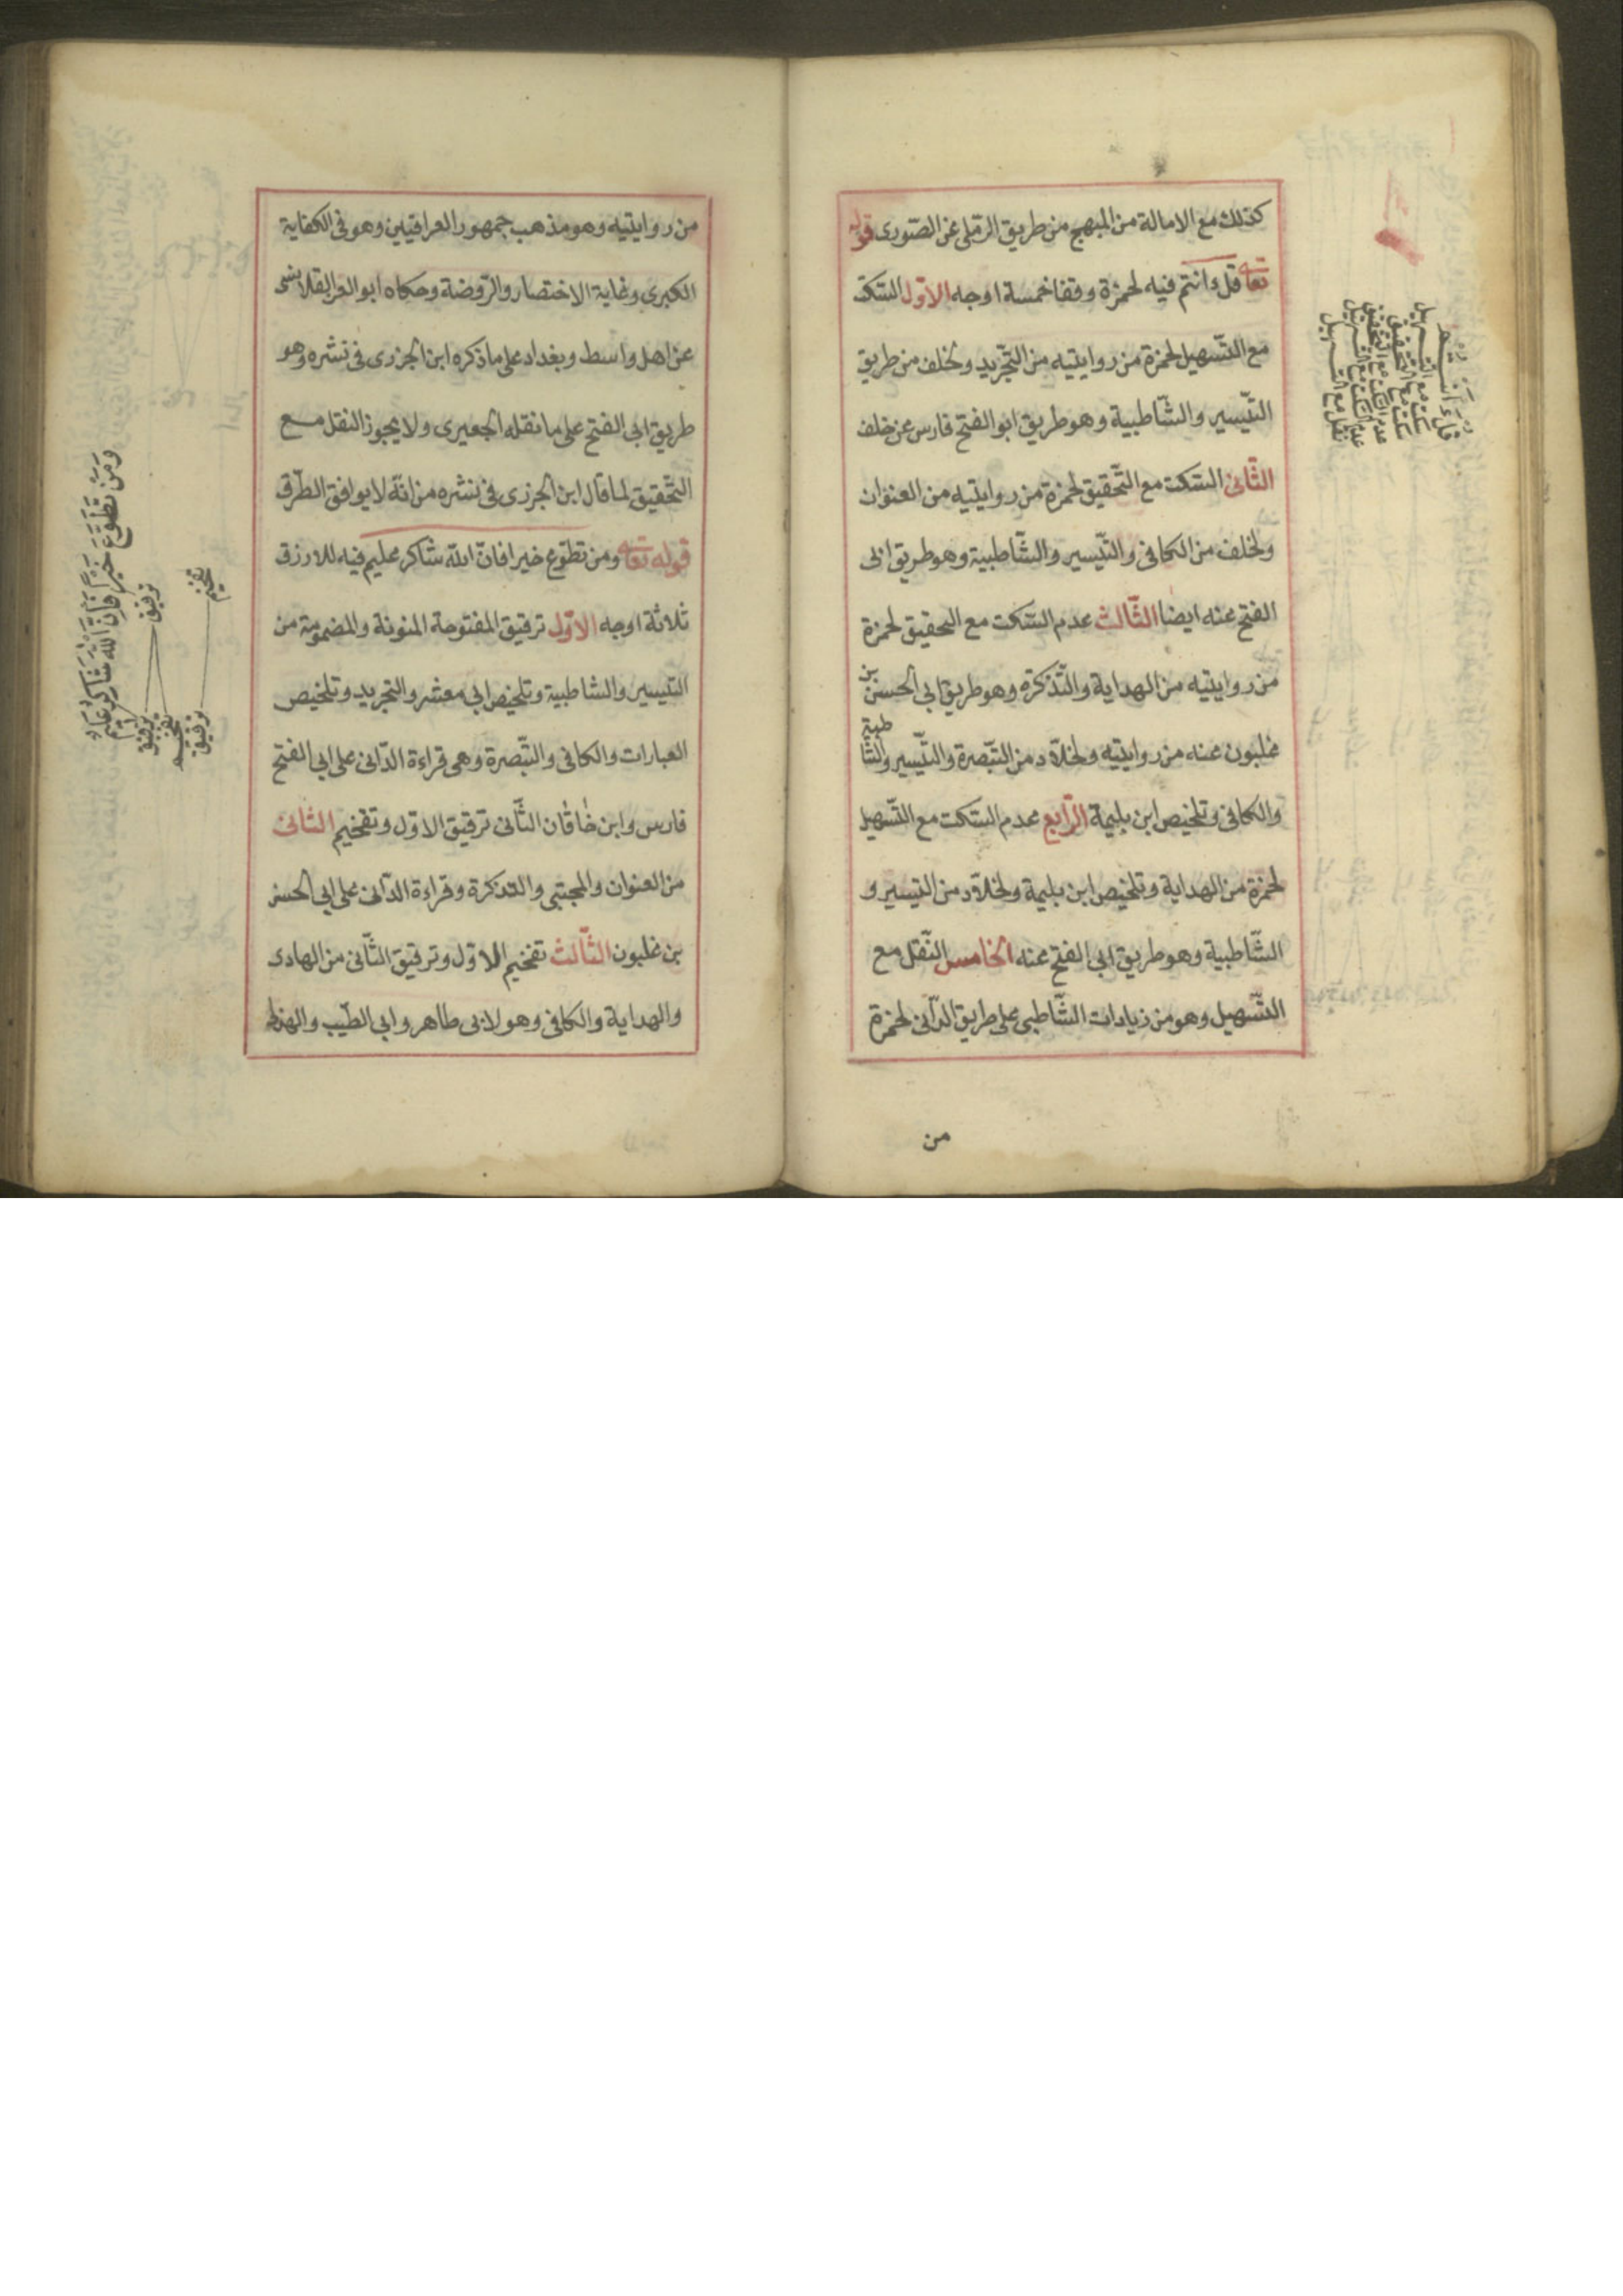 كذلك مع الامالة من المبهج من طريق الرملى عن الصورى قوله
تعا قل ءانتم فيه لحمزة وقفا خمسة اوجه الاول السكت
مع التسهيل لحمزة من روايتيه من التجريد ولخلف من طريق
التيسير والشاطبية وهو طريق ابو الفتح فارس عن خلف
الثانى السكت مع التحقيق لحمزة من روايتيه من العنوان
ولخلف من الكافى والتيسير والشاطبية وهو طريق ابى
الفتح عنه ايضا الثالث عدم السكت مع التحقيق لحمزة
من روايتيه من الهداية والتذكرة وهو طريق ابى الحسن بن
غلبون عنه من روايتيه ولخلاد من التبصرة والتيسير والشاطبية
والكافى وتلخيص ابن بليمة الرابع عدم السكت مع التسهيل
لحمزة من الهداية وتلخيص ابن بليمة ولخلاد من التيسير و
الشاطبية وهو طريق ابى الفتح عنه الخامس النقل مع
التسهيل وهو من زيادات الشاطبى على طريق الدانى لحمزة
من
قل ءانتم
سكت مع التسهيل
سكت مع التحقيق
عدم السكت مع التحقيق
عدم السكت مع التسهيل
نقل مع التسهيل
من روايتيه وهو مذهب جمهور العراقيين وهو فى الكفاية
الكبرى وغاية الاختصار والروضة وحكاه ابو العز القلانسى
عن اهل واسط وبغداد على ما ذكره ابن الجزرى فى نشره وهو
طريق ابى الفتح على ما نقله الجعبرى ولا يجوز النقل مع
التحقيق لما قال ابن الجزرى فى نشره من انه لا يوافق الطرق
قوله تعا ومن تطوع خيرا فان الله شاكر عليم فيه للازرق
ثلاثة اوجه الاول ترقيق المفتوحة المنونة والمضمومة من
التيسير والشاطبية وتلخيص ابى معشر والتجريد وتلخيص
العبارات والكافى والتبصرة وهى قراءة الدانى على ابى الفتح
فارس وابن خاقان الثانى ترقيق الاول وتفخيم الثانى
من العنوان والمجتبى والتذكرة وقراءة الدانى على ابى الحسن
بن غلبون الثالث تفخيم الاول وترقيق الثانى من الهادى
والهداية والكافى وهو لابى طاهر وابى الطيب والهذلى
وَمَنْ تَطَوَّعَ خَيْرًا فَاِنَّ اللهَ شَاكِرٌ عَلِيمٌ
ترقيق ترقيق
تفخيم
تفخيم ترقيق